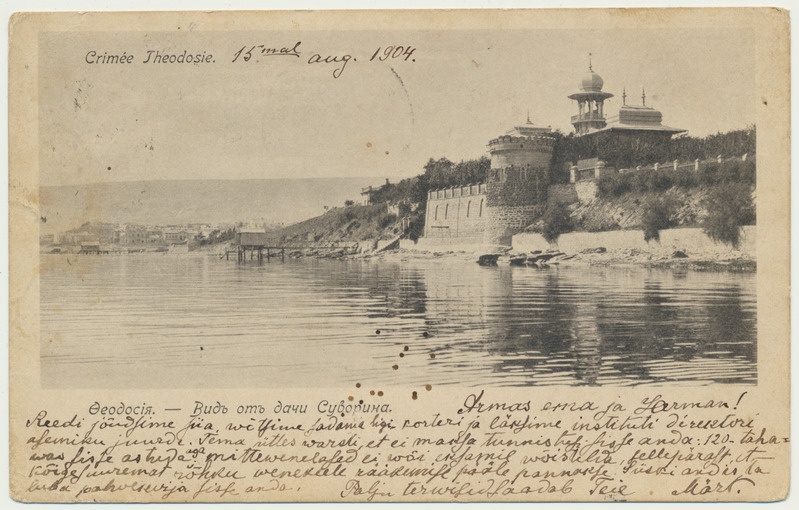 Crimée Theodosie. 15mal aug. 1904.
Ѳеодосія. — Видъ отъ дачи Суворина.
Armas ema ja Herman!
Reedi jõudsime siia, wõtsime sadama ligi korteri ja läksime instituti direktori
asemiku juurde. Tema ütles warsti, et ei maksa tunnistusi sisse anda: 120 taha-
was sisse astuda, aga mittewenelased ei wõi enamiste wõistelda, sellepärast, et
kõige suuremat rõhku wenekeele rääkimise pääle pannakse. Siiski andis ta
luba sisse anda. Palju terwisid saadab Teie Märt.